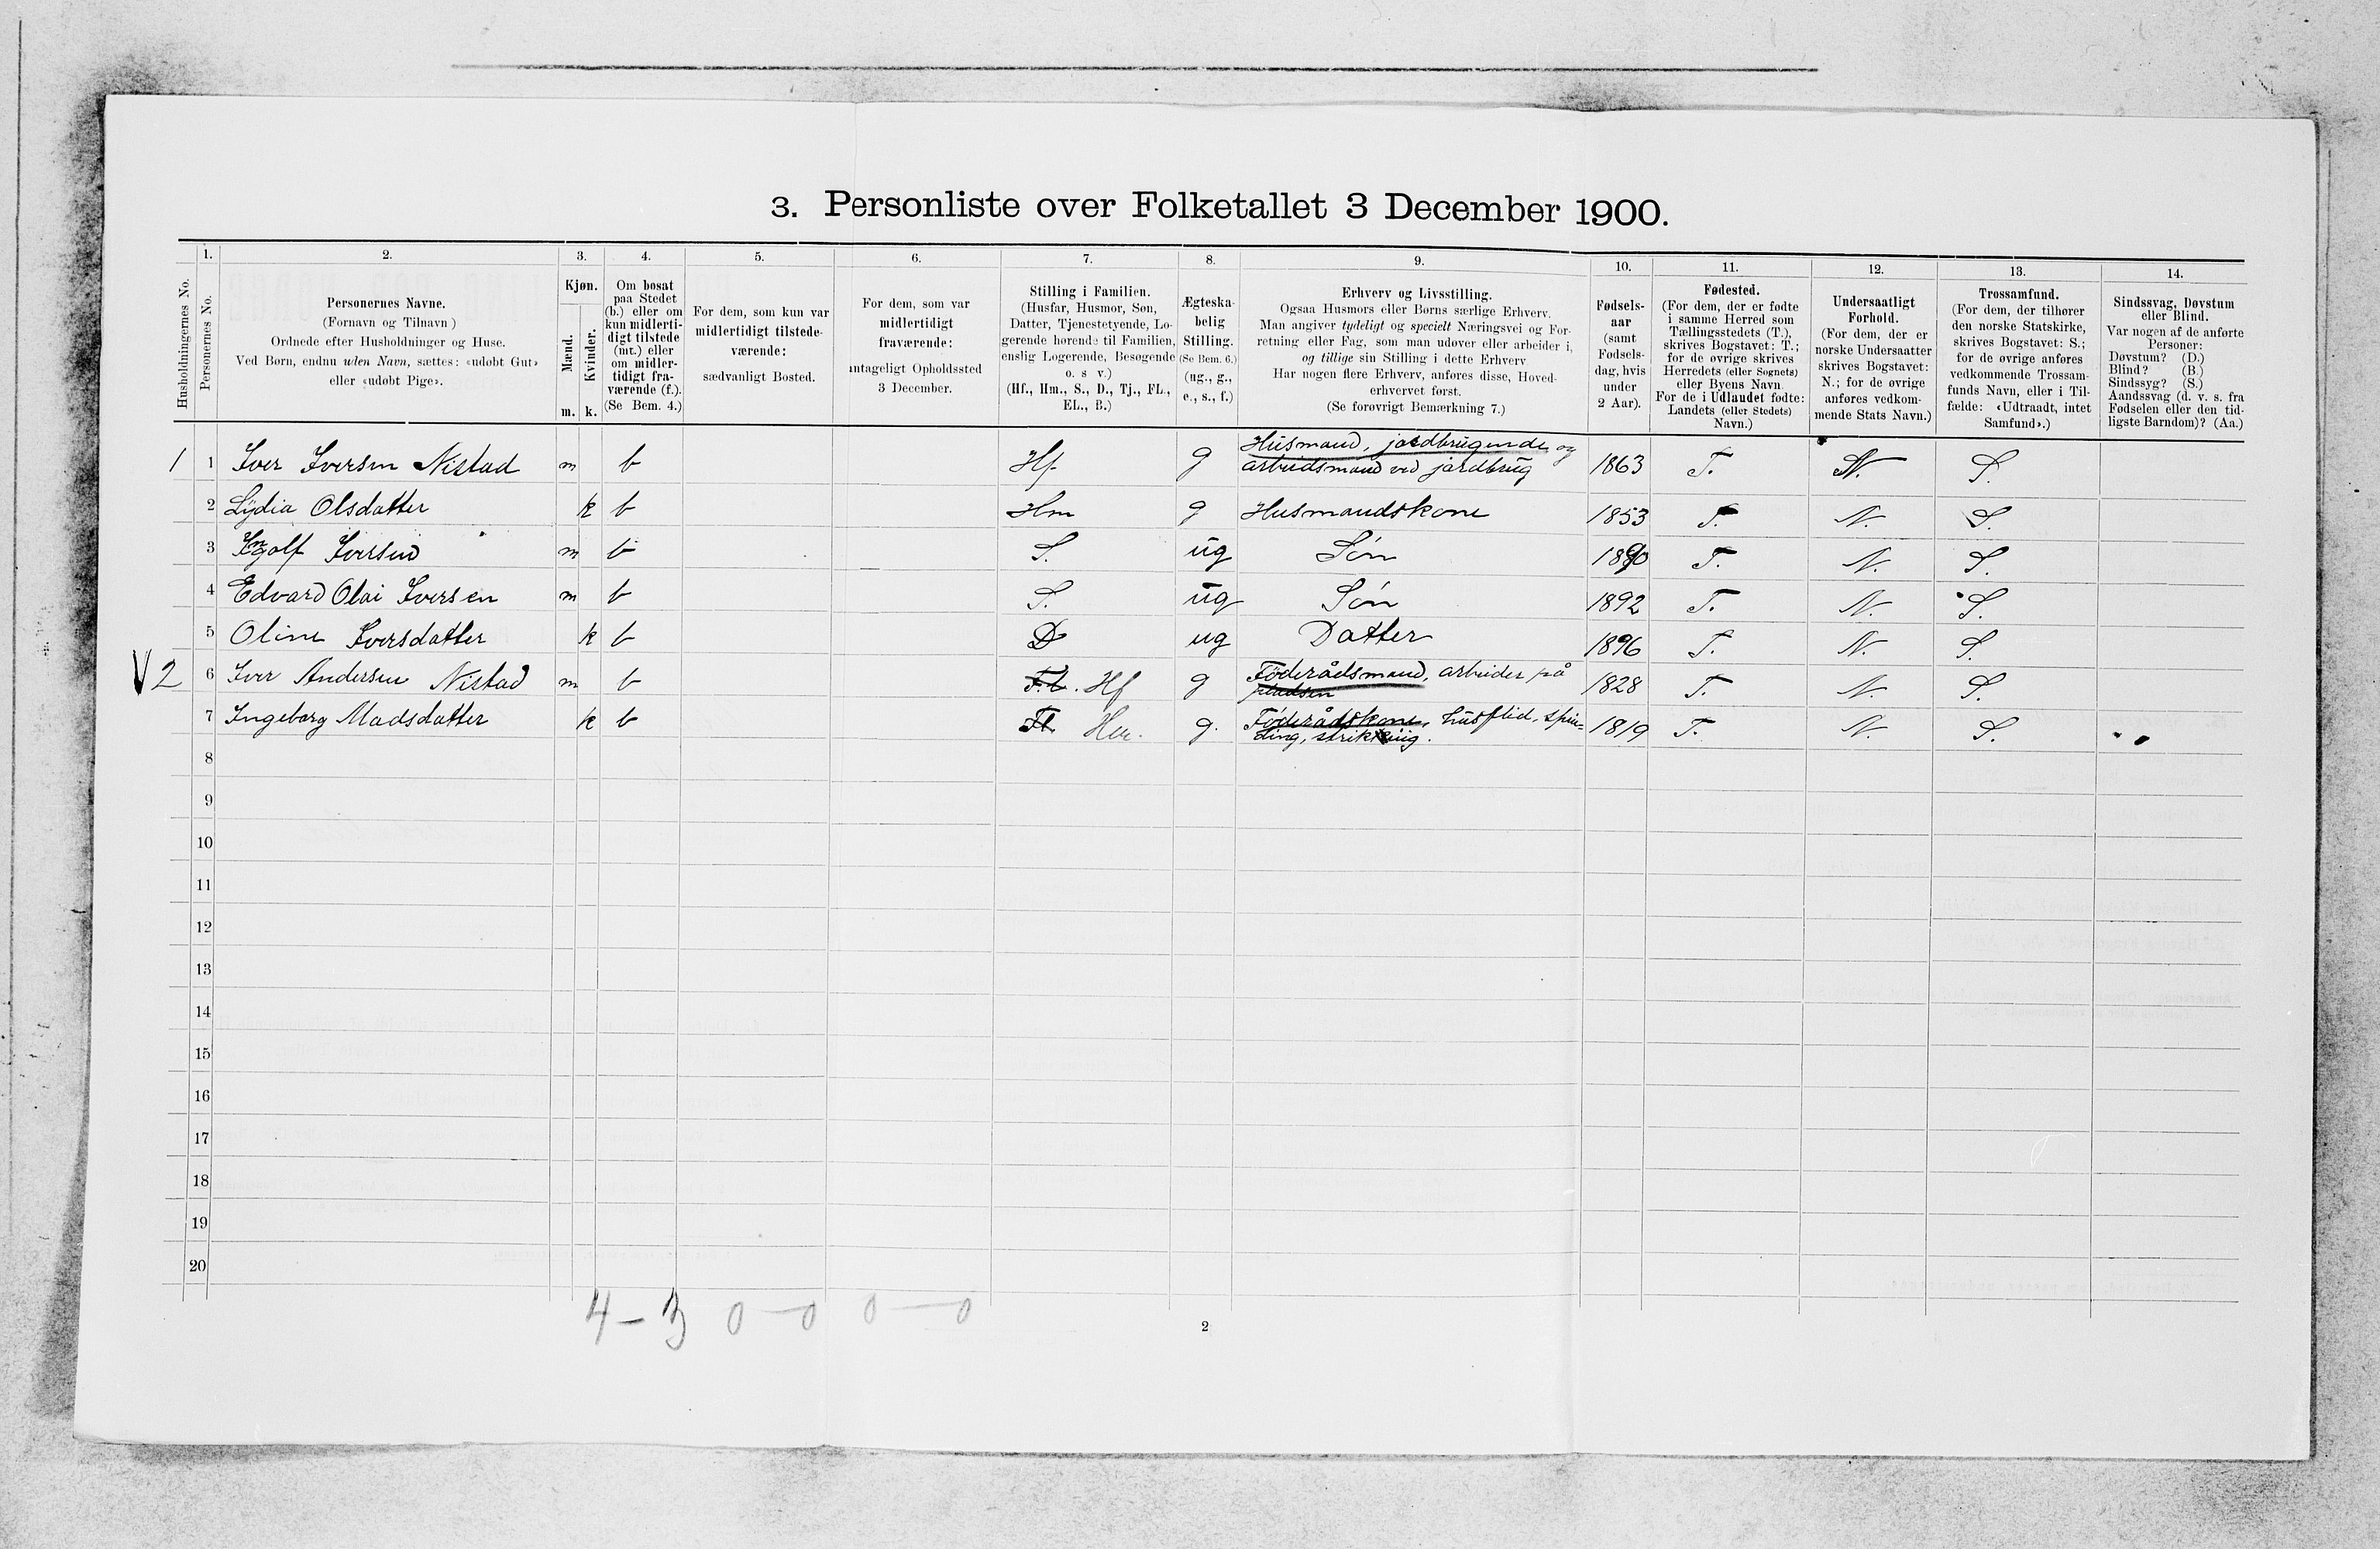 3. Personliste over Folketallet 3 December 1900.
1. 2. 3. 4. 5. 6. 7. 8. 9. 10. 11. 12. 13. 14.
Husholdningernes No.
Personernes No.
Personernes Navne.
(Fornavn og Tilnavn )
Ordnede efter Husholdninger og Huse.
Ved Børn, endnu uden Navn, sættes: «udøbt Gut»
eller «udøbt Pige».
Kjøn.
Mænd.
Kvinder.
m. k.
Om bosat
paa Stedet
(b.) eller om
kun midlerti-
digt tilstede
(mt.) eller
om midler-
tidigt fra-
værende (f.).
(Se Bem. 4.)
For dem, som kun var
midlertidigt tilstede-
værende:
sædvanligt Bosted.
For dem, som var
midlertidigt
fraværende:
antageligt Opholdssted
3 December.
Stilling i Familien.
(Husfar, Husmor, Søn,
Datter, Tjenestetyende, Lo-
gerende hørende til Familien,
enslig Logerende, Besøgende
o. s v.)
(Hf., Hm., S., D., Tj., FL.,
EL., B.)
Ægteska-
belig
Stilling.
(Se Bem. 6.)
(ug., g.,
e., s., f.)
Erhverv og Livsstilling.
Ogsaa Husmors eller Børns særlige Erhverv.
Man angiver tydeligt og specielt Næringsvei og For-
retning eller Fag, som man udøver eller arbeider i,
og tillige sin Stilling i dette Erhverv
Har nogen flere Erhverv, anføres disse, Hoved-
erhvervet først.
(Se forøvrigt Bemærkning 7.)
Fødsels-
aar
(samt
Fødsels-
dag, hvis
under
2 Aar).
Fødested.
(For dem, der er fødte
i samme Herred som
Tællingsstedets (T.),
skrives Bogstavet: T.;
for de øvrige skrives
Herredets (eller Sognets)
eller Byens Navn.
For de i Udlandet fødte:
Landets (eller Stedets)
Navn.)
Undersaatligt
Forhold.
(For dem, der er
norske Undersaatter
skrives Bogstavet:
N.; for de øvrige
anføres vedkom-
mende Stats Navn.)
Trossamfund.
(For dem, der tilhører
den norske Statskirke,
skrives Bogstavet: S.;
for de øvrige anføres
vedkommende Trossam-
funds Navn, eller i Til-
fælde: «Udtraadt, intet
Samfund».)
Sindssvag, Døvstum
eller Blind.
Var nogen af de anførte
Personer:
Døvstum? (D.)
Blind? (B.)
Sindssyg? (S.)
Aandssvag (d. v. s. fra
Fødselen eller den tid-
ligste Barndom)? (Aa.)
Husmand, jordbrugende og
1 1 Iver Iversen Nistad m b Hf g arbeidsmand ved jordbrug 1863 T. N. S.
2 Lydia Olsdatter k b Hm g Husmandskone 1853 T. N. S.
3 Ingolf Iversen m b S. ug Søn 1890 T. N. S.
4 Edvard Olai Iversen m b S. ug Søn 1892 T. N. S.
5 Oline Iversdatter k b D ug Datter 1896 T. N. S.
V 2 6 Iver Andersen Nistad m b F.L. Hf g Föderådsmand, arbeider på 1828 T. N. S.
pladsen
7 Ingeborg Madsdatter k b Fl. Hm. g. Föderådskone, husflid, spin- 1819 T. N. S.
ding, strikking.
8
9
10
11
12
13
14
15
16
17
18
19
20
4 – 3 0 – 0 0 – 0
2